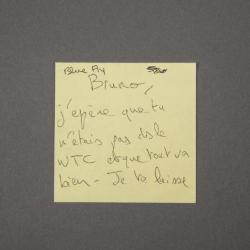 Blue Fly
Bruno,
j'espère que tu
n'étais pas ds le
WTC et que tout va
bien - Je te laisse